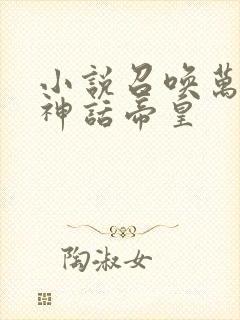 小説召喚萬
神話帝皇
陶淑女